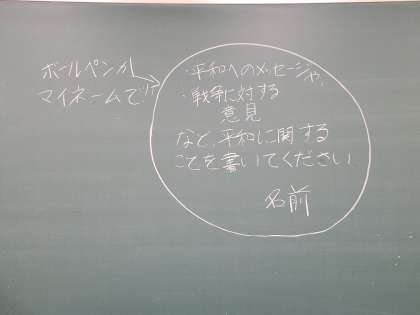 ボールペンか
マイネームで!!
・平和へのメッセージや、
・戦争に対する
意見
など、平和に関する
ことを書いてください
名前